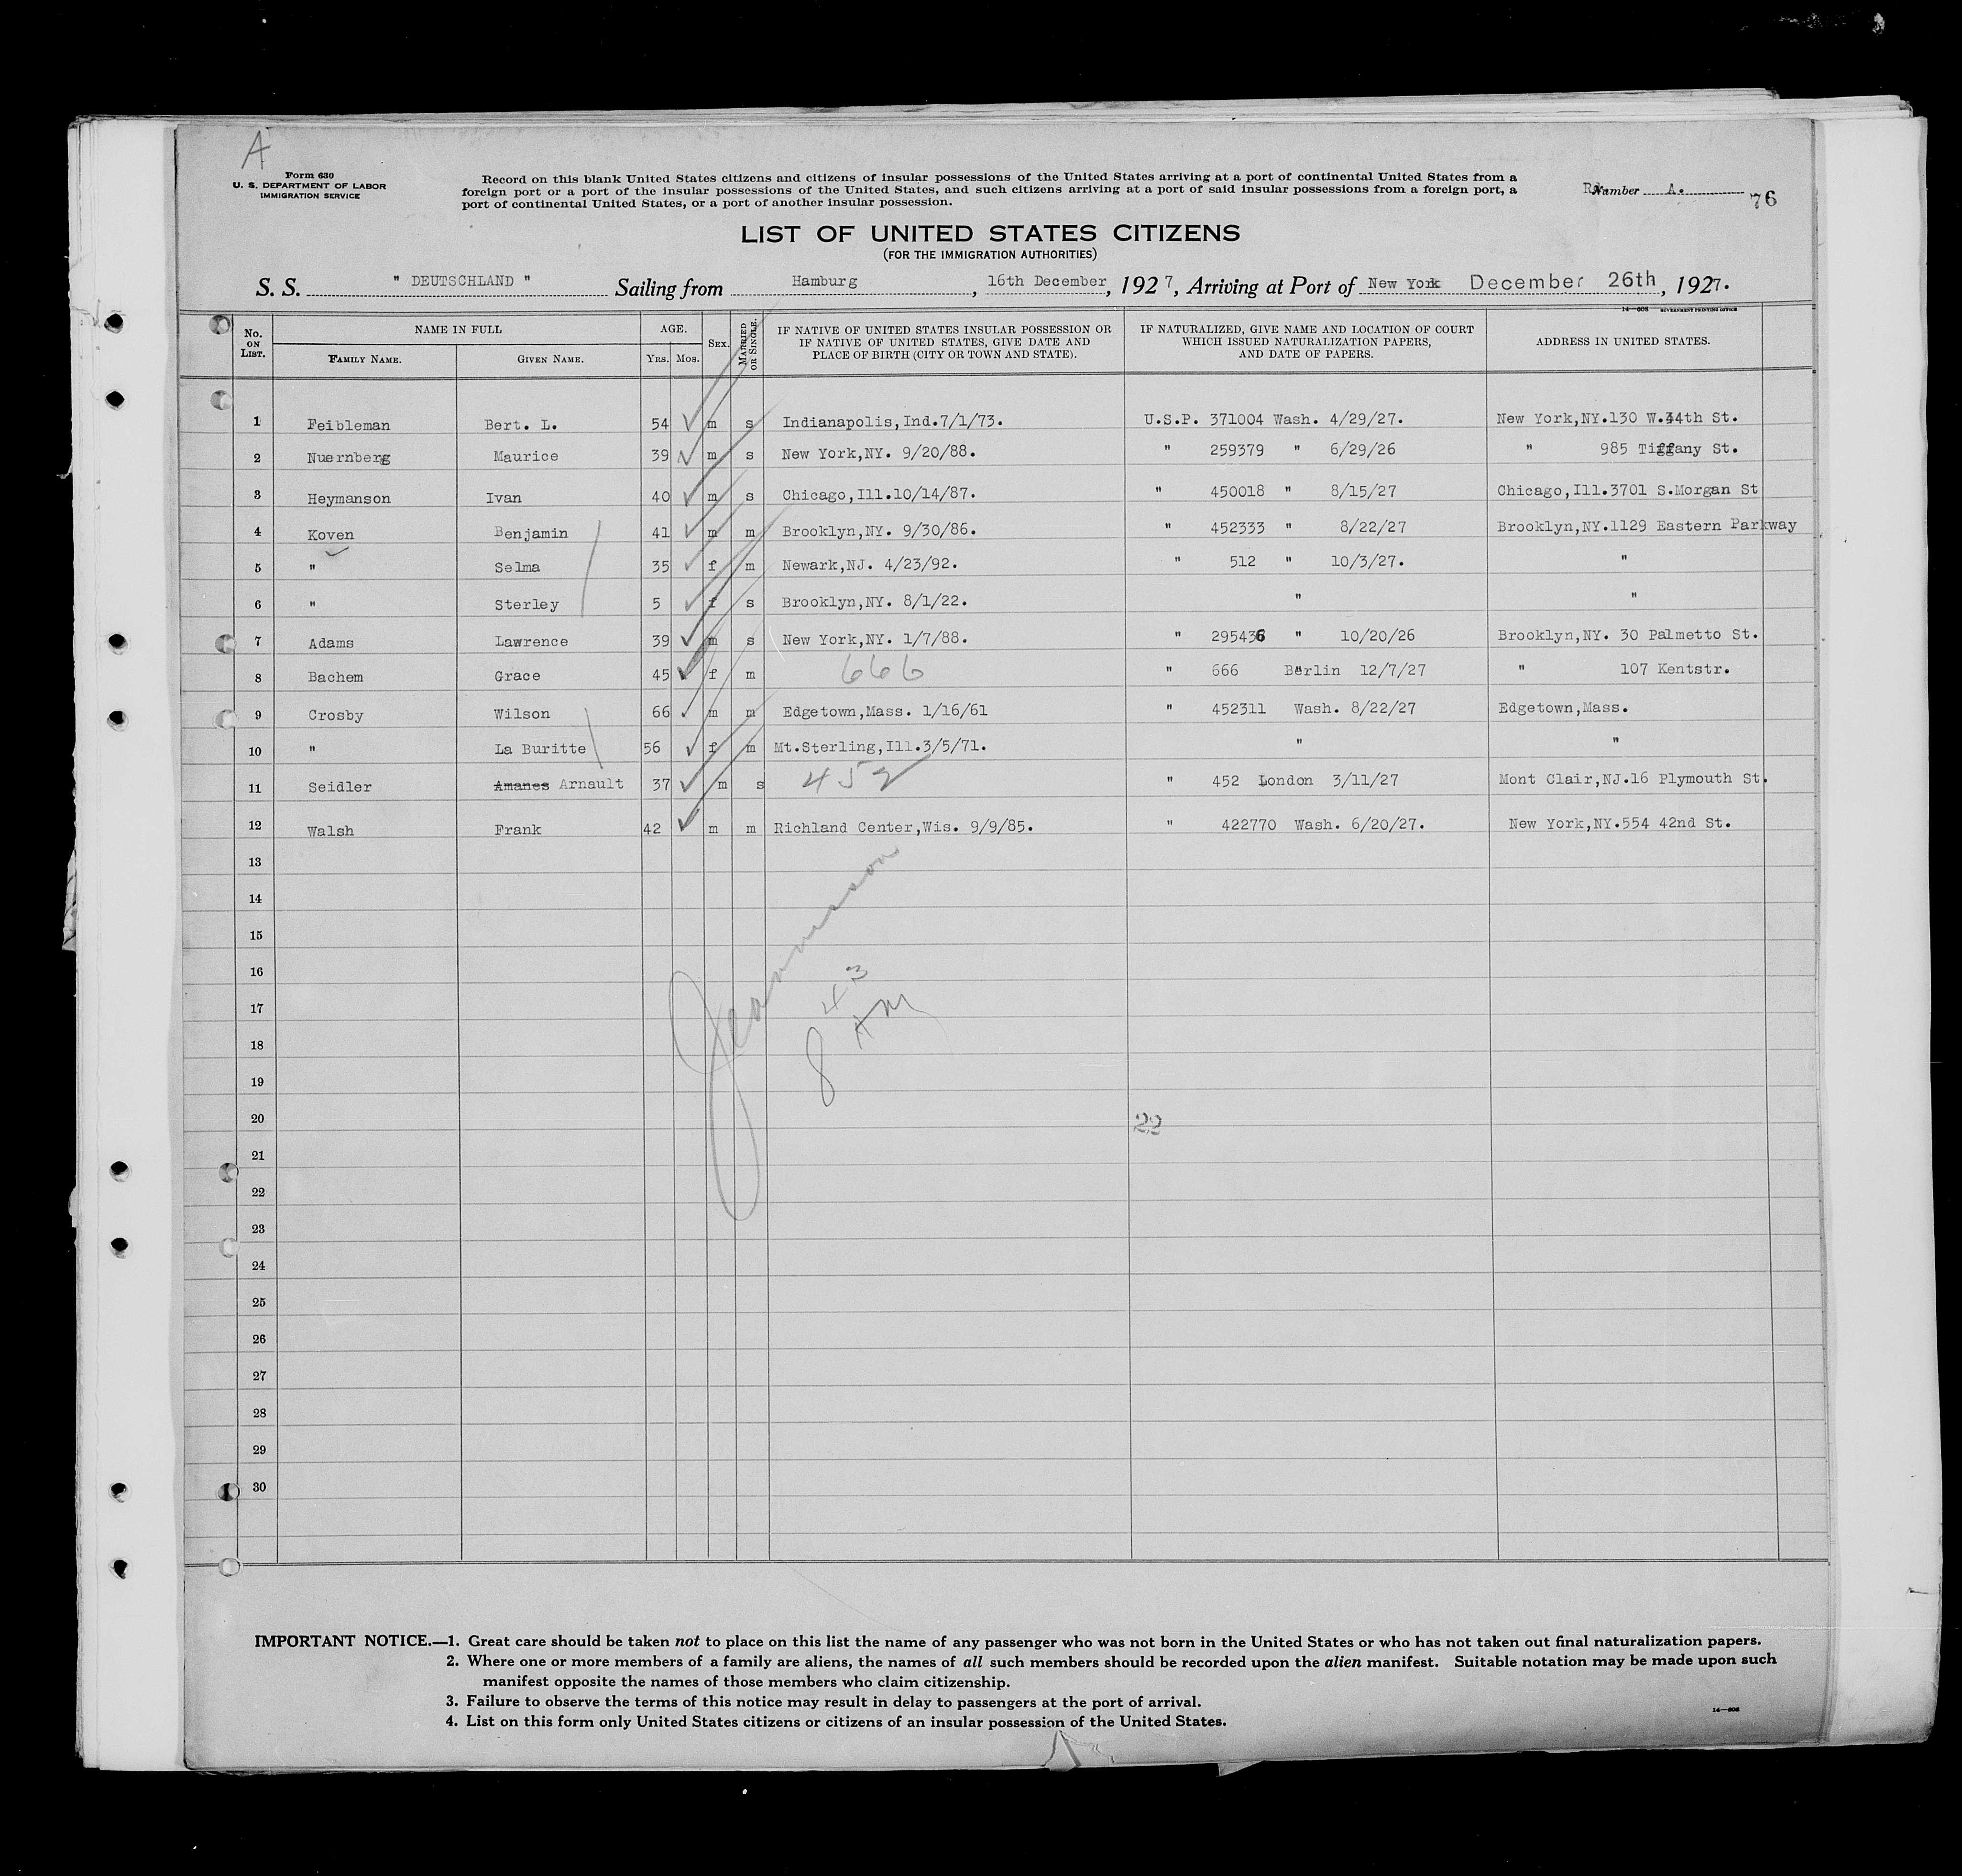 A
Form 630
U. S. DEPARTMENT OF LABOR
IMMIGRATION SERVICE
Record on this blank United States citizens and citizens of insular possessions of the United States arriving at a port of continental United States from a
foreign port or a port of the insular possessions of the United States, and such citizens arriving at a port of said insular possessions from a foreign port, a
port of continental United States, or a port of another insular possession.
Number A.
76
LIST OF UNITED STATES CITIZENS
(FOR THE IMMIGRATION AUTHORITIES)
S. S. " DEUTSCHLAND " Sailing from Hamburg, 16th December, 1927, Arriving at Port of New York December 26th, 1927.
14—608 GOVERNMENT PRINTING OFFICE
No. ON LIST. NAME IN FULL AGE. SEX. MARRIED OR SINGLE. IF NATIVE OF UNITED STATES INSULAR POSSESSION OR IF NATIVE OF UNITED STATES, GIVE DATE AND PLACE OF BIRTH (CITY OR TOWN AND STATE). IF NATURALIZED, GIVE NAME AND LOCATION OF COURT WHICH ISSUED NATURALIZATION PAPERS, AND DATE OF PAPERS. ADDRESS IN UNITED STATES.
FAMILY NAME. GIVEN NAME. YRS. MOS.
1 Feibleman Bert. L. 54 m s Indianapolis,Ind.7/1/73. U.S.P. 371004 Wash. 4/29/27. New York,NY.130 W.44th St.
2 Nuernberg Maurice 39 m s New York,NY. 9/20/88. " 259379 " 6/29/26 " 985 Tiffany St.
3 Heymanson Ivan 40 m s Chicago,Ill.10/14/87. " 450018 " 8/15/27 Chicago,Ill.3701 S.Morgan St
4 Koven Benjamin 41 m m Brooklyn,NY. 9/30/86. " 452333 " 8/22/27 Brooklyn,NY.1129 Eastern Parkway
5 " Selma 35 f m Newark,NJ. 4/23/92. " 512 " 10/3/27. "
6 " Sterley 5 f s Brooklyn,NY. 8/1/22. " "
7 Adams Lawrence 39 m s New York,NY. 1/7/88. " 295436 " 10/20/26 Brooklyn,NY. 30 Palmetto St.
8 Bachem Grace 45 f m 666 " 666 Berlin 12/7/27 " 107 Kentstr.
9 Crosby Wilson 66 m m Edgetown,Mass. 1/16/61 " 452311 Wash. 8/22/27 Edgetown,Mass.
10 " La Buritte 56 f m Mt.Sterling,Ill.3/5/71. " "
11 Seidler Amanes Arnault 37 m s 452 " 452 London 3/11/27 Mont Clair,NJ.16 Plymouth St.
12 Walsh Frank 42 m m Richland Center,Wis. 9/9/85. " 422770 Wash. 6/20/27. New York,NY.554 42nd St.
13
14
15
16
17
8 43 AM
18
19
20 22
21
22
23
24
25
26
27
28
29
30
IMPORTANT NOTICE.—1. Great care should be taken not to place on this list the name of any passenger who was not born in the United States or who has not taken out final naturalization papers.
2. Where one or more members of a family are aliens, the names of all such members should be recorded upon the alien manifest. Suitable notation may be made upon such
manifest opposite the names of those members who claim citizenship.
3. Failure to observe the terms of this notice may result in delay to passengers at the port of arrival.
4. List on this form only United States citizens or citizens of an insular possession of the United States.
14—608